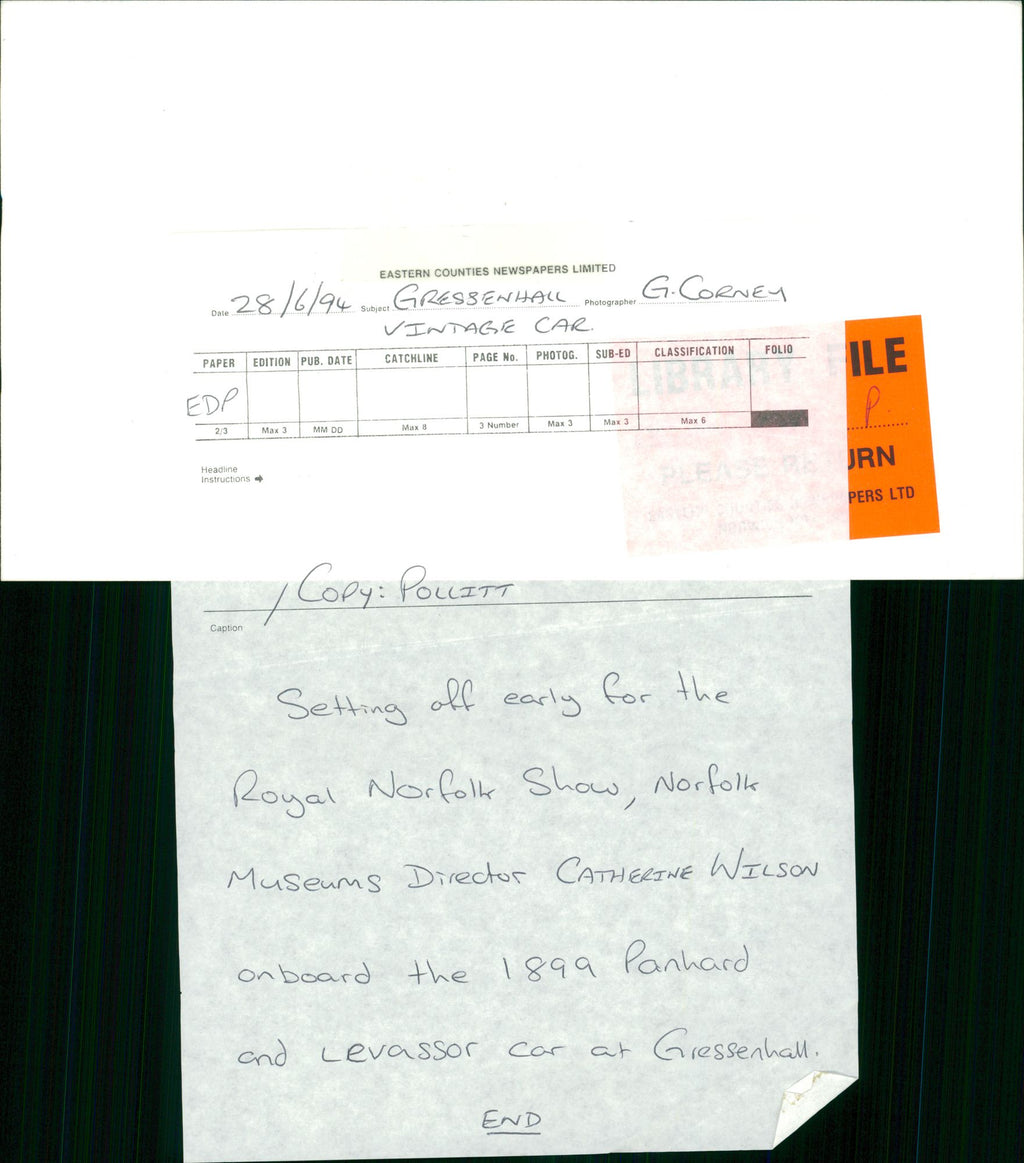 EASTERN COUNTIES NEWSPAPERS LIMITED
Date 28/6/94 Subject GRESSENHALL Photographer G. CORNEY
VINTAGE CAR.
PAPER EDITION PUB. DATE CATCHLINE PAGE No. PHOTOG. SUB-ED CLASSIFICATION FOLIO
EDP
2/3 Max 3 MM DD Max 8 3 Number Max 3 Max 3 Max 6
Headline
Instructions
LIBRARY FILE
P.
PLEASE
URN
PERS LTD
/ COPY: POLLITT
Caption
Setting off early for the
Royal Norfolk Show, Norfolk
Museums Director CATHERINE WILSON
onboard the 1899 Panhard
and Levassor car at Gressenhall.
END